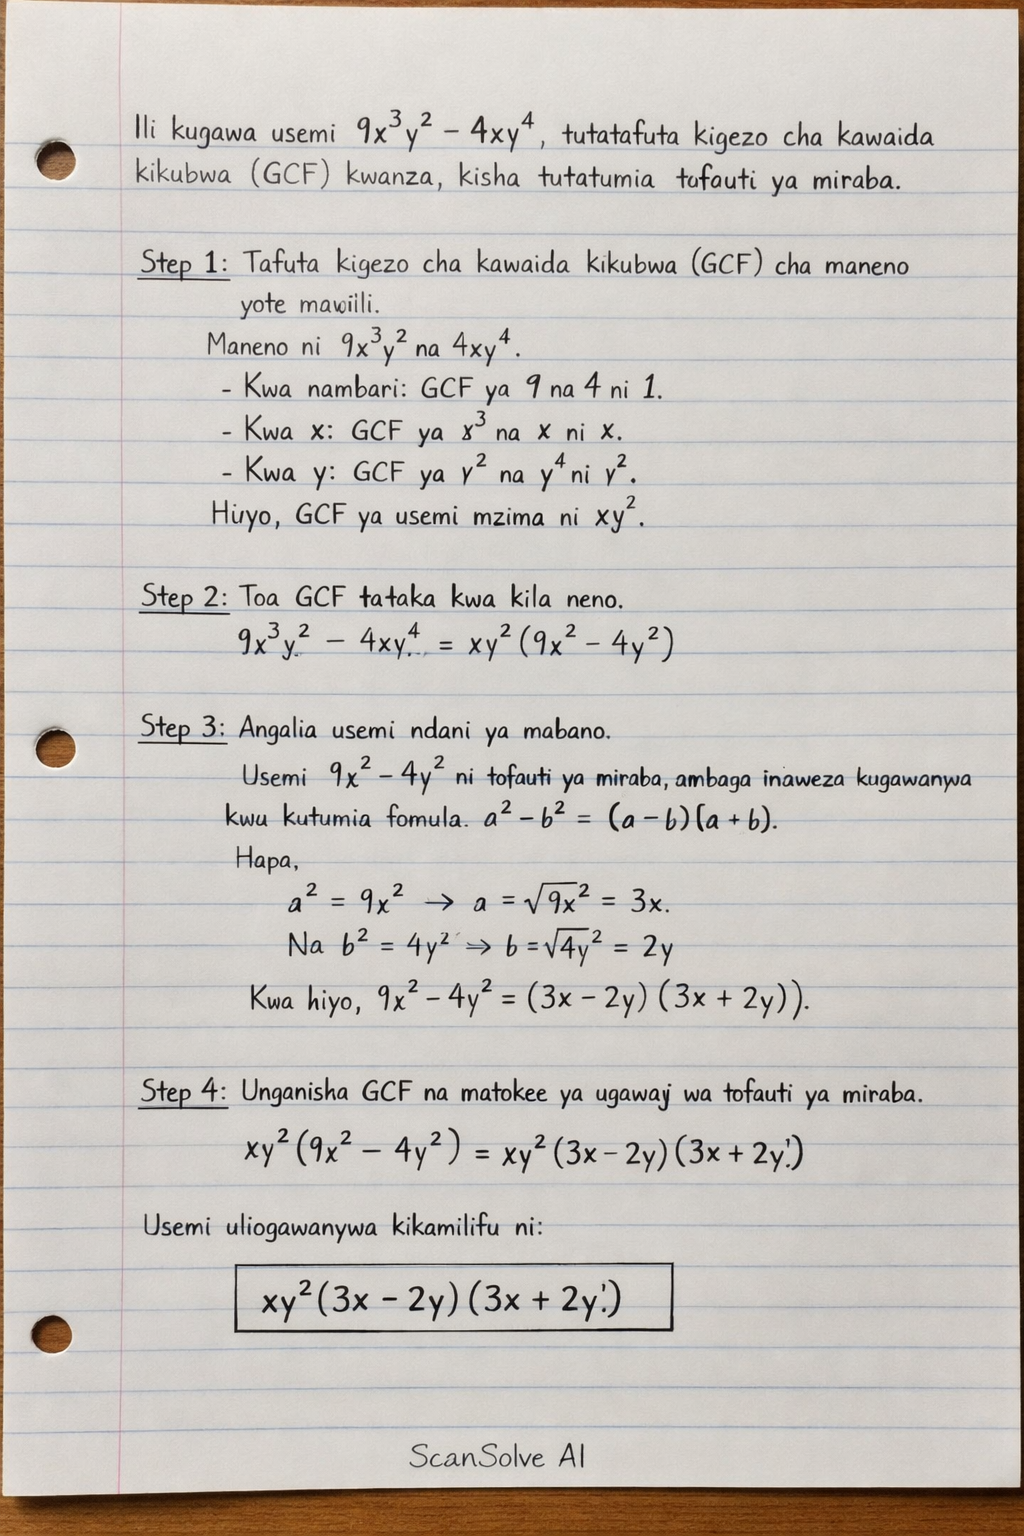 Ili kugawa usemi 9x³y² − 4xy⁴, tutatafuta kigezo cha kawaida
kikubwa (GCF) kwanza, kisha tutatumia tofauti ya miraba.
Step 1: Tafuta kigezo cha kawaida kikubwa (GCF) cha maneno
yote mawiili.
Maneno ni 9x³y² na 4xy⁴.
- Kwa nambari: GCF ya 9 na 4 ni 1.
- Kwa x: GCF ya x³ na x ni x.
- Kwa y: GCF ya y² na y⁴ ni y².
Hiyo, GCF ya usemi mzima ni xy².
Step 2: Toa GCF tataka kwa kila neno.
9x³y² − 4xy⁴ = xy² (9x² − 4y²)
Step 3: Angalia usemi ndani ya mabano.
Usemi 9x² − 4y² ni tofauti ya miraba, ambaga inaweza kugawanywa
kwu kutumia fomula. a² − b² = (a − b)(a + b).
Hapa,
a² = 9x² → a = √9x² = 3x.
Na b² = 4y² → b = √4y² = 2y
Kwa hiyo, 9x² − 4y² = (3x − 2y) (3x + 2y)).
Step 4: Unganisha GCF na matokee ya ugawaj wa tofauti ya miraba.
xy² (9x² − 4y²) = xy² (3x − 2y) (3x + 2y!)
Usemi uliogawanywa kikamilifu ni:
xy² (3x − 2y) (3x + 2y!)
ScanSolve AI